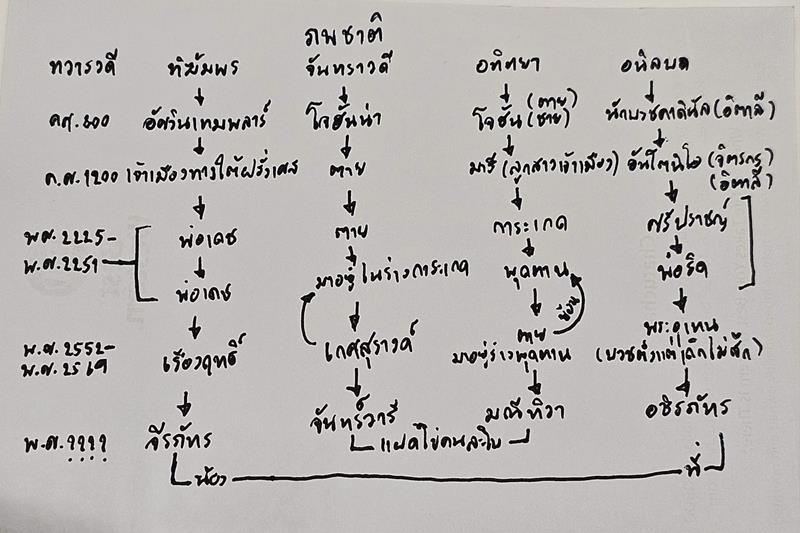 ภพชาติ
ทวารวดี ทิฆัมพร จันทราวดี อทิตยา อนิลบถ
คศ. 800 อัศวินเทมพลาร์ โจฮันน่า โจฮัน (ตาย) (ชาย) นักบวชคาดินัล (อิตาลี)
ค.ศ. 1200 เจ้าเมืองทางใต้ฝรั่งเศส ตาย มารี (ลูกสาวเจ้าเมือง) อันโตนิโอ (จิตรกร) (อิตาลี)
พศ. 2225- พ่อเดช ตาย การะเกด ศรีปราชญ์
พ.ศ. 2251 พ่อเดช มาอยู่ในร่างการะเกด พุดตาน พ่อริด
ย้อน
พ.ศ. 2552- เรืองฤทธิ์ เกศสุรางค์ ตาย พระอุเทน
พ.ศ. 2569 มาอยู่ร่างพุดตาน (บวชตั้งแต่เด็กไม่สึก)
พ.ศ. ???? จีรภัทร จันทร์วารี มณีทิวา อชิรภัทร
แฝดไข่คนละใบ
น้อง พี่